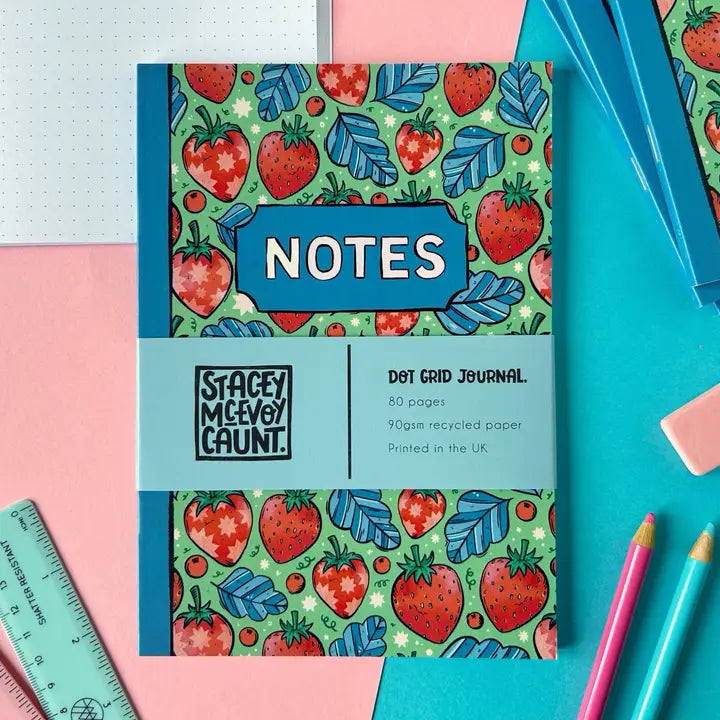 NOTES
STACEY
McEVOY
CAUNT.
DOT GRID JOURNAL.
80 pages
90gsm recycled paper
Printed in the UK
SHATTER RESISTANT
INCH 0
1
2
3
13
12
11
10
9